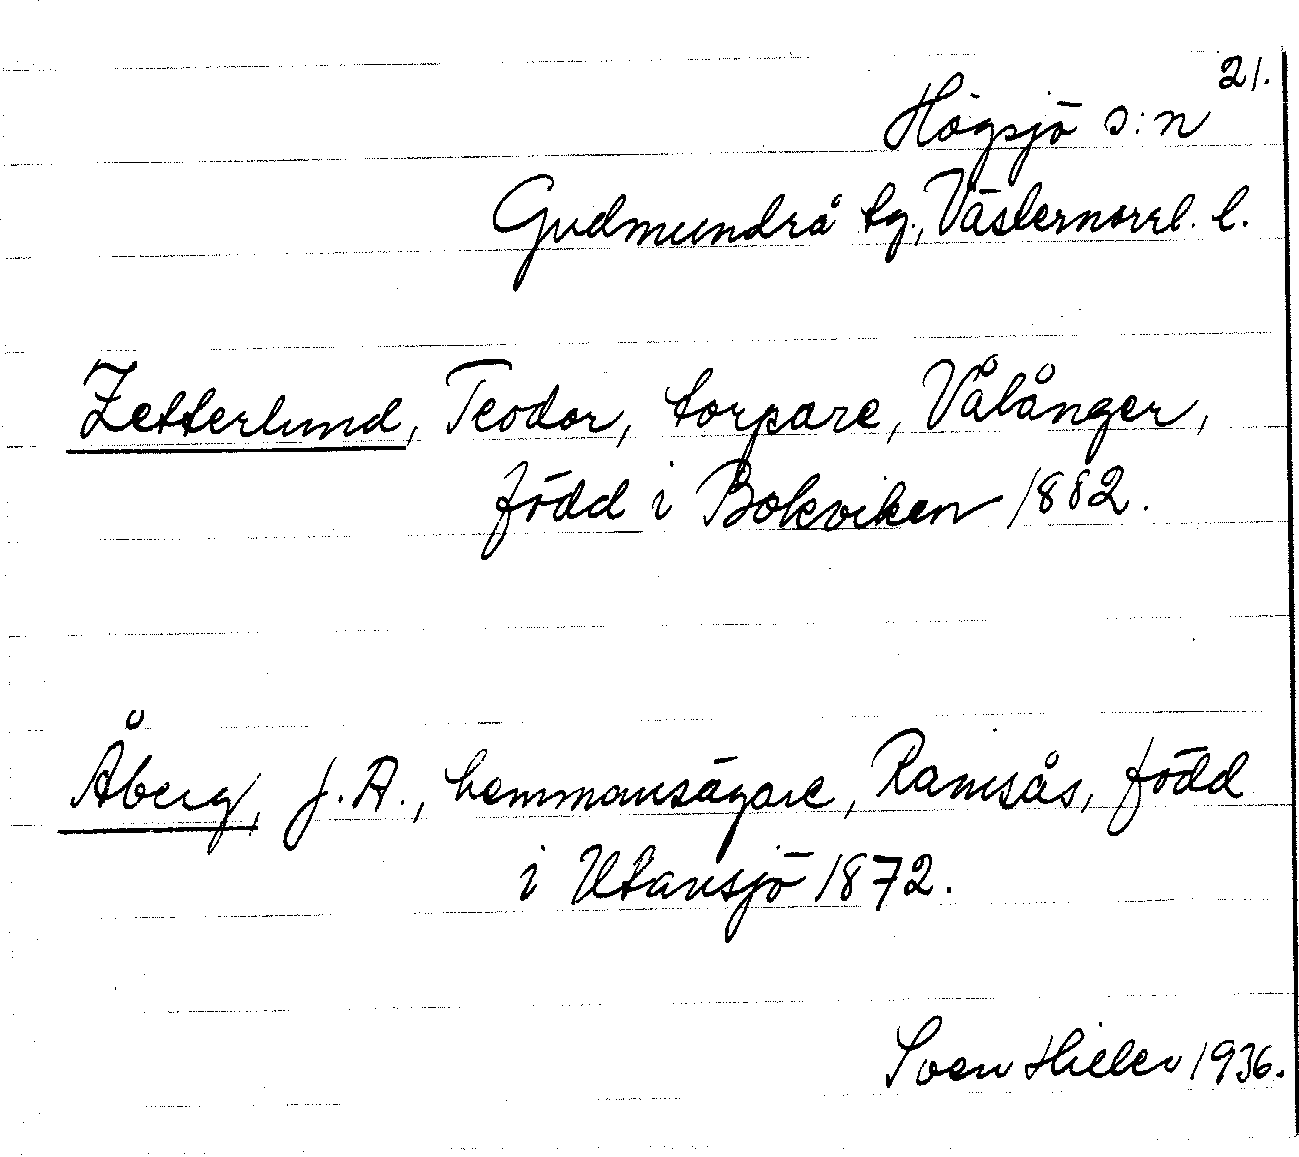 21.
Högsjö s:n
Gudmundrå tg., Västernorrl. l.
Zetterlund, Teodor, torpare, Vålånger,
född i Bokviken 1882.
Åberg, J. A., hemmansägare, Ramsås, född
i Utansjö 1872.
Sven Hieler 1936.